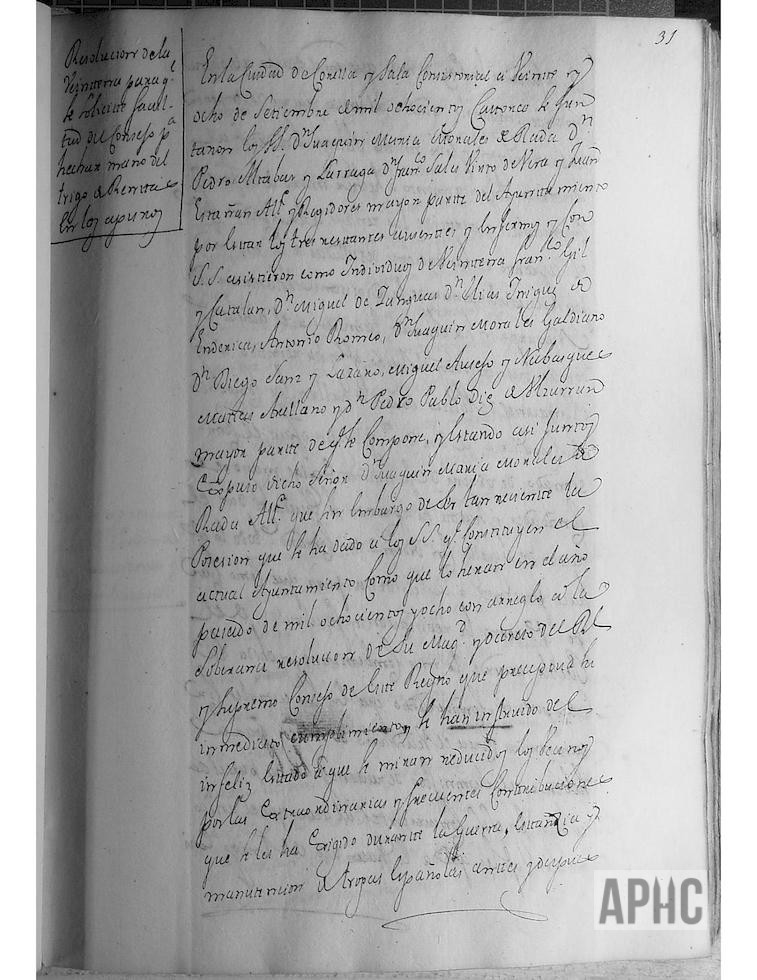 31
Resolucion de la
Veintena para q.^e
se solicite facul-
tad del Consejo p.^a
hechar mano del
trigo de Renta
En los apuros
En la Ciudad de Corella y Sala Consistorial a Veinte y
ocho de Setiembre de mil ochocientos Catorce se Jun
taron los SS. d.^n Joaquin Maria Morales de Rada d.^n
Pedro Miabar y Larraga d.^n Fran.^co Sales Virto de Vera y Juan
Estañan Alc.^e y Regidores mayor parte del Ayuntamiento
por estar los tres restantes ausentes y enfermos y con
S.S. asistieron como Individuos de Veintena Fran.^co Gil
y Catalan, d.^n Miguel de Zunguas d.^n Elias Iniguez de
Endenica, Antonio Romeo, d.^n Joaquin Morales Galdiano
d.^n Diego Sanz y Lazaro, Miguel Auseso y Nabasques
Matias Arellano y d.^n Pedro Pablo Diez de Ulzurrun
mayor parte de q.^e se Compone, y estando asi Juntos
Expuso dicho Señor d.^n Joaquin Maria Morales de
Rada Alc.^e que sin embargo de ser tan reciente la
Posesion que se ha dado a los S.S. q.^e Constituyen el
actual Ayuntamiento Como que lo heran en el año
pasado de mil ochocientos y ocho con arreglo a la
Soberana resolucion de Su Mag.^d y decreto del R.^l
y Supremo Consejo de este Reyno que preceptua su
inmediato cumplimiento, se han instruido del
infeliz estado a que se miran reducidos los Vecinos
por las Extraordinarias y frecuentes Contribuciones
que se les ha Exigido durante la Guerra, estancia y
manutencion de tropas Españolas antes y despues
APHC